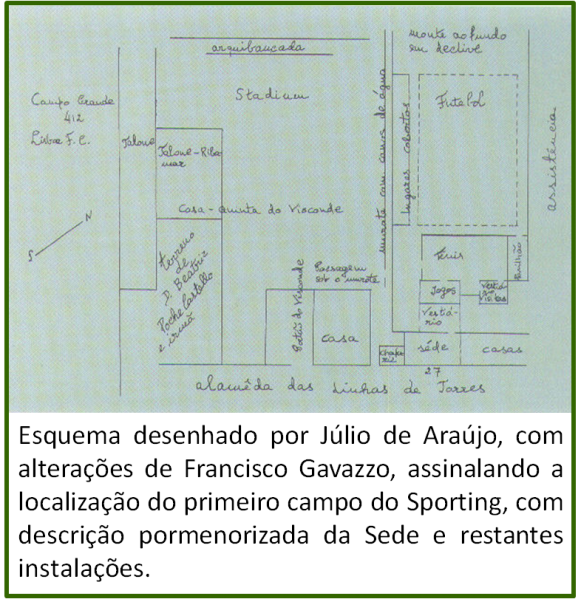 arquibancada
monte ao fundo
em declive
Stadium
Campo Grande
412
Lisboa F. C.
Talone
Talone-Riba
mar
murete com canos de água
lugares cobertos
Futebol
assistência
Casa-Quinta do Visconde
N
S
terreno
de
D. Beatriz
Roche Castello
e irmã
Portão do Visconde
Passagem
sob o murete
casa
Ténis
Pavilhão
Jogos
Vestiá-
rio
Chafa-
riz
séde
casas
27
alamêda das Linhas de Torres
Esquema desenhado por Júlio de Araújo, com
alterações de Francisco Gavazzo, assinalando a
localização do primeiro campo do Sporting, com
descrição pormenorizada da Sede e restantes
instalações.